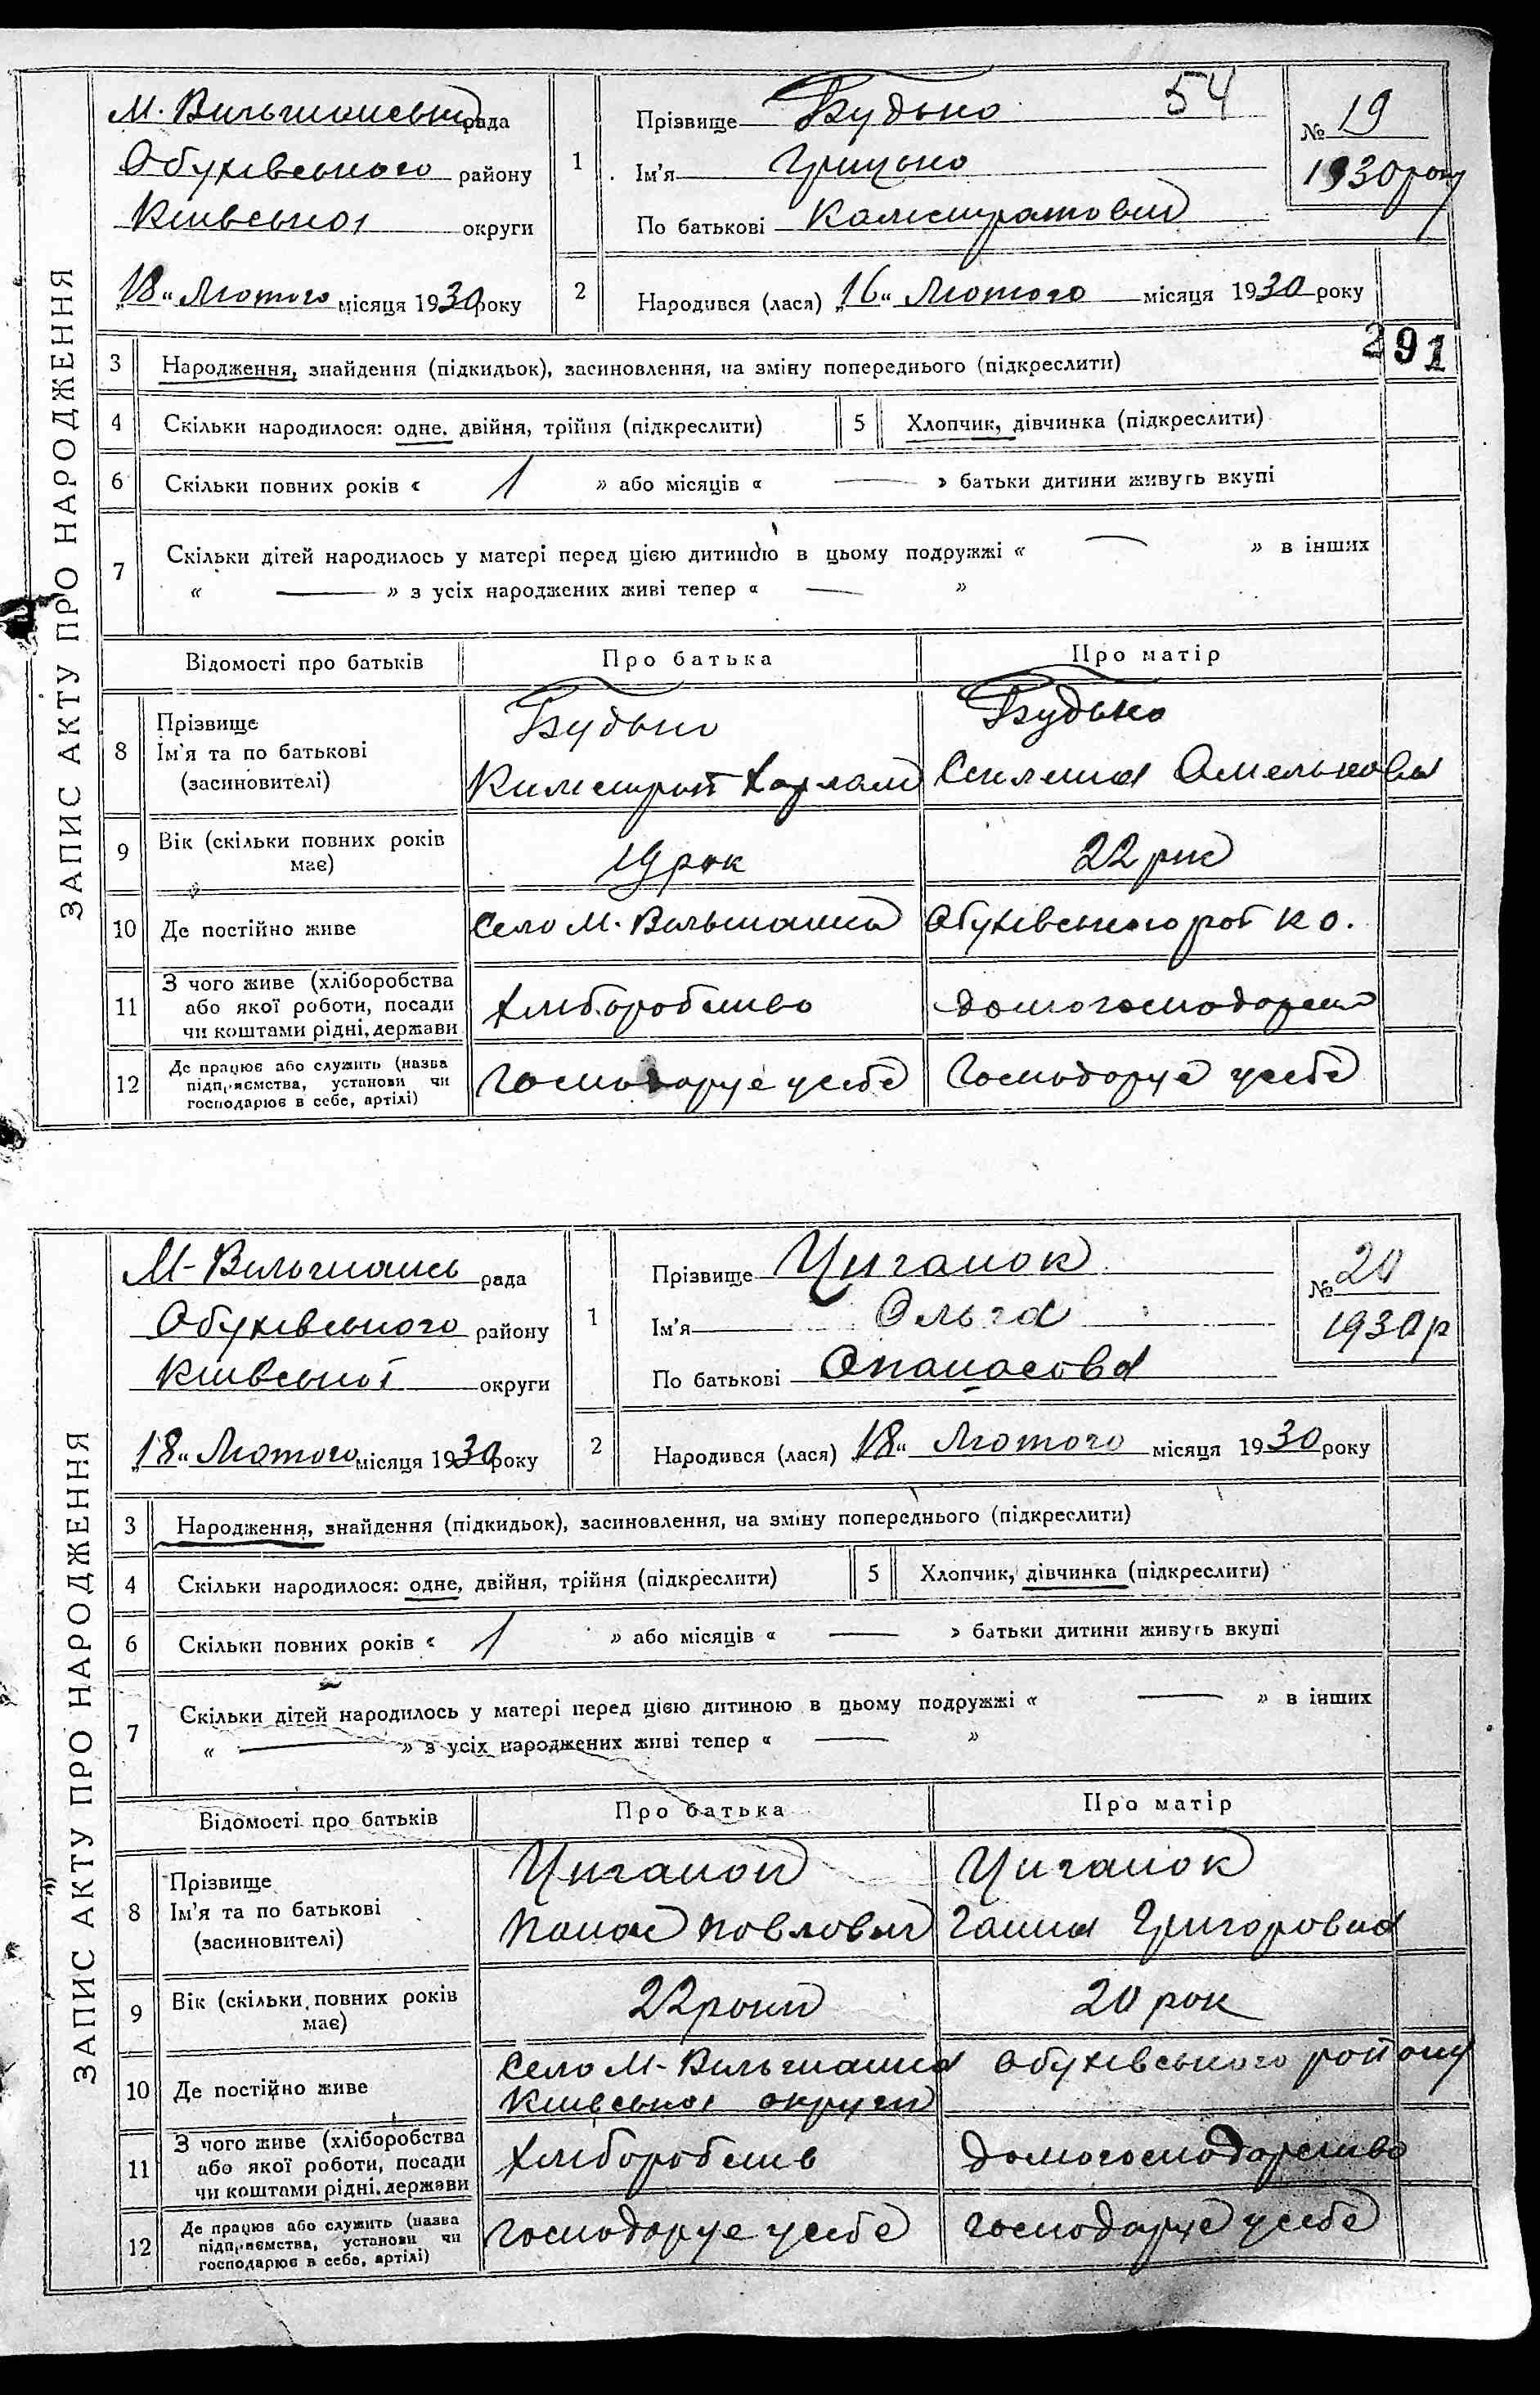 54
ЗАПИС АКТУ ПРО НАРОДЖЕННЯ
М. Вильшанська рада
Обухівського району
Київської округи
"18" Лютого місяця 1930 року
1 Прізвище Будько
Ім'я Грицько
По батькові Калистратович
№ 19
1930 року
2 Народився (лася) "16" Лютого місяця 1930 року
291
3 Народження, знайдення (підкидьок), засиновлення, на зміну попереднього (підкреслити)
4 Скільки народилося: одне, двійня, трійня (підкреслити) 5 Хлопчик, дівчинка (підкреслити)
6 Скільки повних років « 1 » або місяців « — » батьки дитини живуть вкупі
7 Скільки дітей народилось у матері перед цією дитиною в цьому подружжі « — » в інших
« — » з усіх народжених живі тепер « — »
Відомості про батьків Про батька Про матір
8 Прізвище Ім'я та по батькові (засиновителі)
Будько Будько
Калистрат Харлам Омелькова
9 Вік (скільки повних років має) 19 рок 22 рик
10 Де постійно живе Село М. Вильшанка Обухівського рай К О.
11 З чого живе (хліборобства або якої роботи, посади чи коштами рідні, держави
Хлиборобство домогосподарст
12 Де працює або служить (назва підприємства, установи чи господарює в себе, артілі)
Господарує у себе Господарує у себе
ЗАПИС АКТУ ПРО НАРОДЖЕННЯ
М-Вильшанск рада
Обухівського району
Київської округи
"18" Лютого місяця 1930 року
1 Прізвище Циганок
Ім'я Ольга
По батькові Опанасова
№ 20
1930 р
2 Народився (лася) "18" Лютого місяця 1930 року
3 Народження, знайдення (підкидьок), засиновлення, на зміну попереднього (підкреслити)
4 Скільки народилося: одне, двійня, трійня (підкреслити) 5 Хлопчик, дівчинка (підкреслити)
6 Скільки повних років « 1 » або місяців « — » батьки дитини живуть вкупі
7 Скільки дітей народилось у матері перед цією дитиною в цьому подружжі « — » в інших
« — » з усіх народжених живі тепер « — »
Відомості про батьків Про батька Про матір
8 Прізвище Ім'я та по батькові (засиновителі)
Циганок Циганок
Панас Павлович Ганна Григоровна
9 Вік (скільки повних років має) 22 роки 20 рок
10 Де постійно живе Село М-Вильшанка Обухівського району
Київської округи
11 З чого живе (хліборобства або якої роботи, посади чи коштами рідні, держави
Хлиборобств домогосподарство
12 Де працює або служить (назва підприємства, установи чи господарює в себе, артілі)
Господарує у себе Господарує у себе